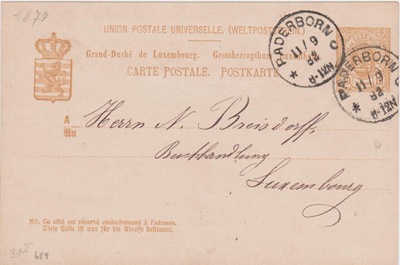 1879
UNION POSTALE UNIVERSELLE. (WELTPOSTVEREIN.)
Grand-Duché de Luxembourg. Grossherzogthum Luxemburg.
CARTE POSTALE. POSTKARTE
PADERBORN
11/9
82
8-12N
PADERBORN
11/9
82
8-12N
A
An
Herrn N. Breisdorff,
Buchhandlung
Luxembourg
NB. Ce côté est réservé exclusivement à l'adresse.
Diese Seite ist nur für die Adresse bestimmt.